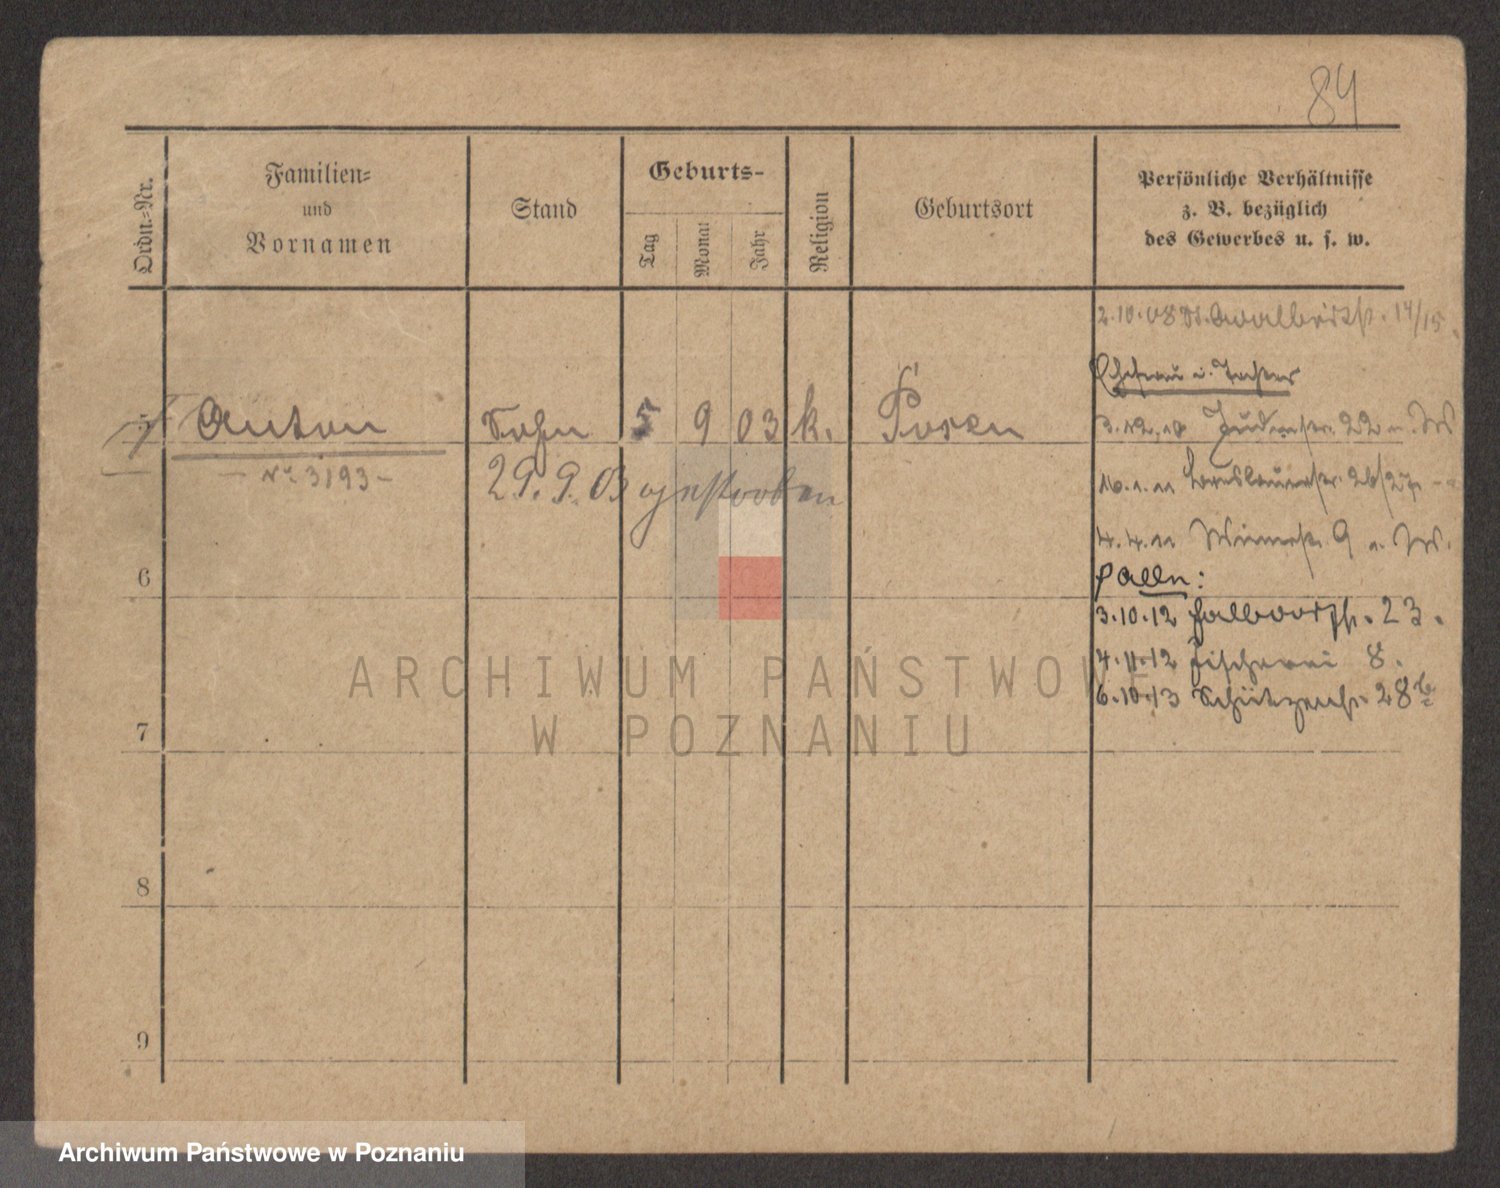 84
Ordn.-Nr.
Familien-
und
Vornamen
Stand
Geburts-
Tag
Monat
Jahr
Religion
Geburtsort
Persönliche Verhältnisse
z. B. bezüglich
des Gewerbes u. s. w.
2.10.08 St. Adalbertstr. 14/15
Ehefrau u. Tochter
Anton Sohn 5 9 03 k. Posen
3.12.10 Judenstr. 22
Nr. 3193
29.9.03 gestorben
16.1.11 Breslauerstr. 26/27
4.4.11 9
6
allein:
3.10.12 Halbdorfstr. 23.
4.11.12 Fischerei 8.
6.10.13 Schützenstr. 28b
7
8
9
ARCHIWUM PAŃSTWOWE
W POZNANIU
Archiwum Państwowe w Poznaniu